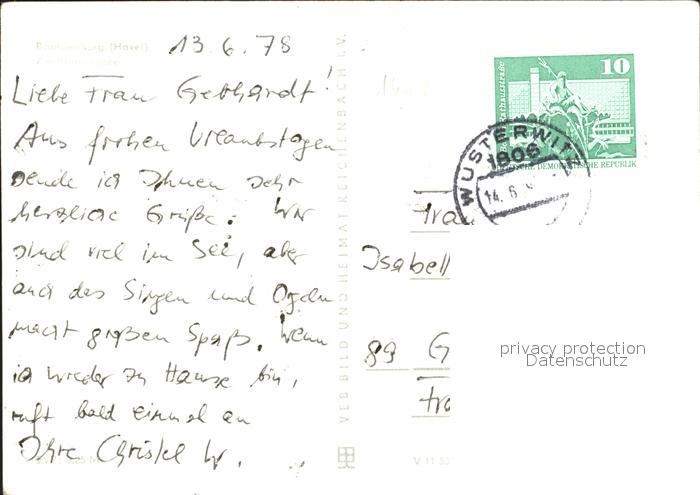 Brandenburg (Havel)
13.6.78
Liebe Frau Gebhardt!
Aus frohen Urlaubstagen
sende ich Ihnen sehr
herzliche Grüße. Wir
sind viel im See, aber
auch das Singen und Orgeln
macht großen Spaß. Wenn
ich wieder zu Hause bin,
ruft bald einmal an
Ihre Christel W.
VEB BILD UND HEIMAT REICHENBACH I. V.
10
DEUTSCHE DEMOKRATISCHE REPUBLIK
WUSTERWITZ
1806
14. 6.
Frau
Isabell
89 G
Fra
privacy protection
Datenschutz
V 11 50